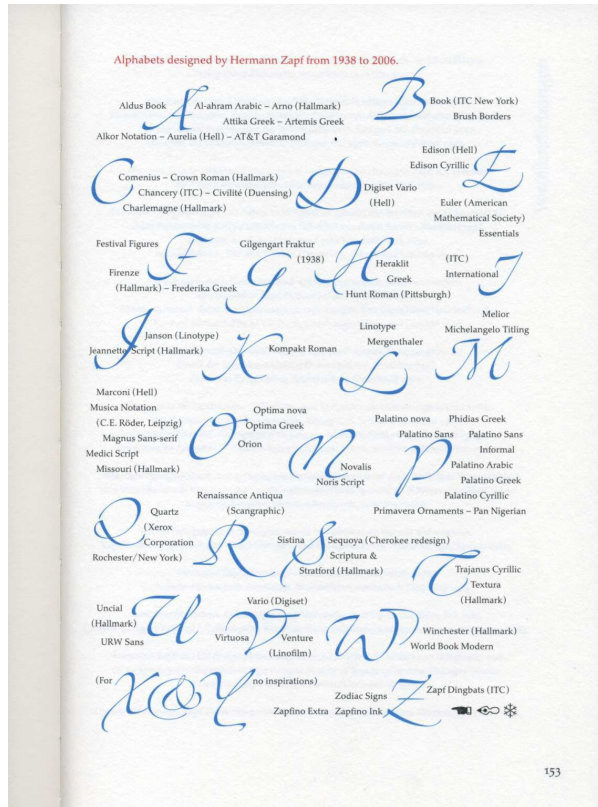 Alphabets designed by Hermann Zapf from 1938 to 2006.
Aldus Book A Al-ahram Arabic – Arno (Hallmark)
Attika Greek – Artemis Greek
Alkor Notation – Aurelia (Hell) – AT&T Garamond
B Book (ITC New York)
Brush Borders
C Comenius – Crown Roman (Hallmark)
Chancery (ITC) – Civilité (Duensing)
Charlemagne (Hallmark)
D Digiset Vario
(Hell)
Edison (Hell)
Edison Cyrillic E
Euler (American
Mathematical Society)
Essentials
Festival Figures F
Firenze
(Hallmark) – Frederika Greek
Gilgengart Fraktur
(1938)
G
H Heraklit
Greek
Hunt Roman (Pittsburgh)
(ITC)
International I
J Janson (Linotype)
Jeannette Script (Hallmark)
K Kompakt Roman
Linotype
Mergenthaler
L
Melior
Michelangelo Titling
M
Marconi (Hell)
Musica Notation
(C.E. Röder, Leipzig)
Magnus Sans-serif
Medici Script
Missouri (Hallmark)
O Optima nova
Optima Greek
Orion
N Novalis
Noris Script
Palatino nova Phidias Greek
Palatino Sans Palatino Sans
Informal
P Palatino Arabic
Palatino Greek
Palatino Cyrillic
Primavera Ornaments – Pan Nigerian
Q Quartz
(Xerox
Corporation
Rochester/New York)
Renaissance Antiqua
(Scangraphic)
R
Sistina S Sequoya (Cherokee redesign)
Scriptura &
Stratford (Hallmark)
T Trajanus Cyrillic
Textura
(Hallmark)
Uncial U
(Hallmark)
URW Sans
Vario (Digiset)
Virtuosa V Venture
(Linofilm)
W Winchester (Hallmark)
World Book Modern
(For X & Y no inspirations)
Zodiac Signs Z Zapf Dingbats (ITC)
Zapfino Extra Zapfino Ink
153